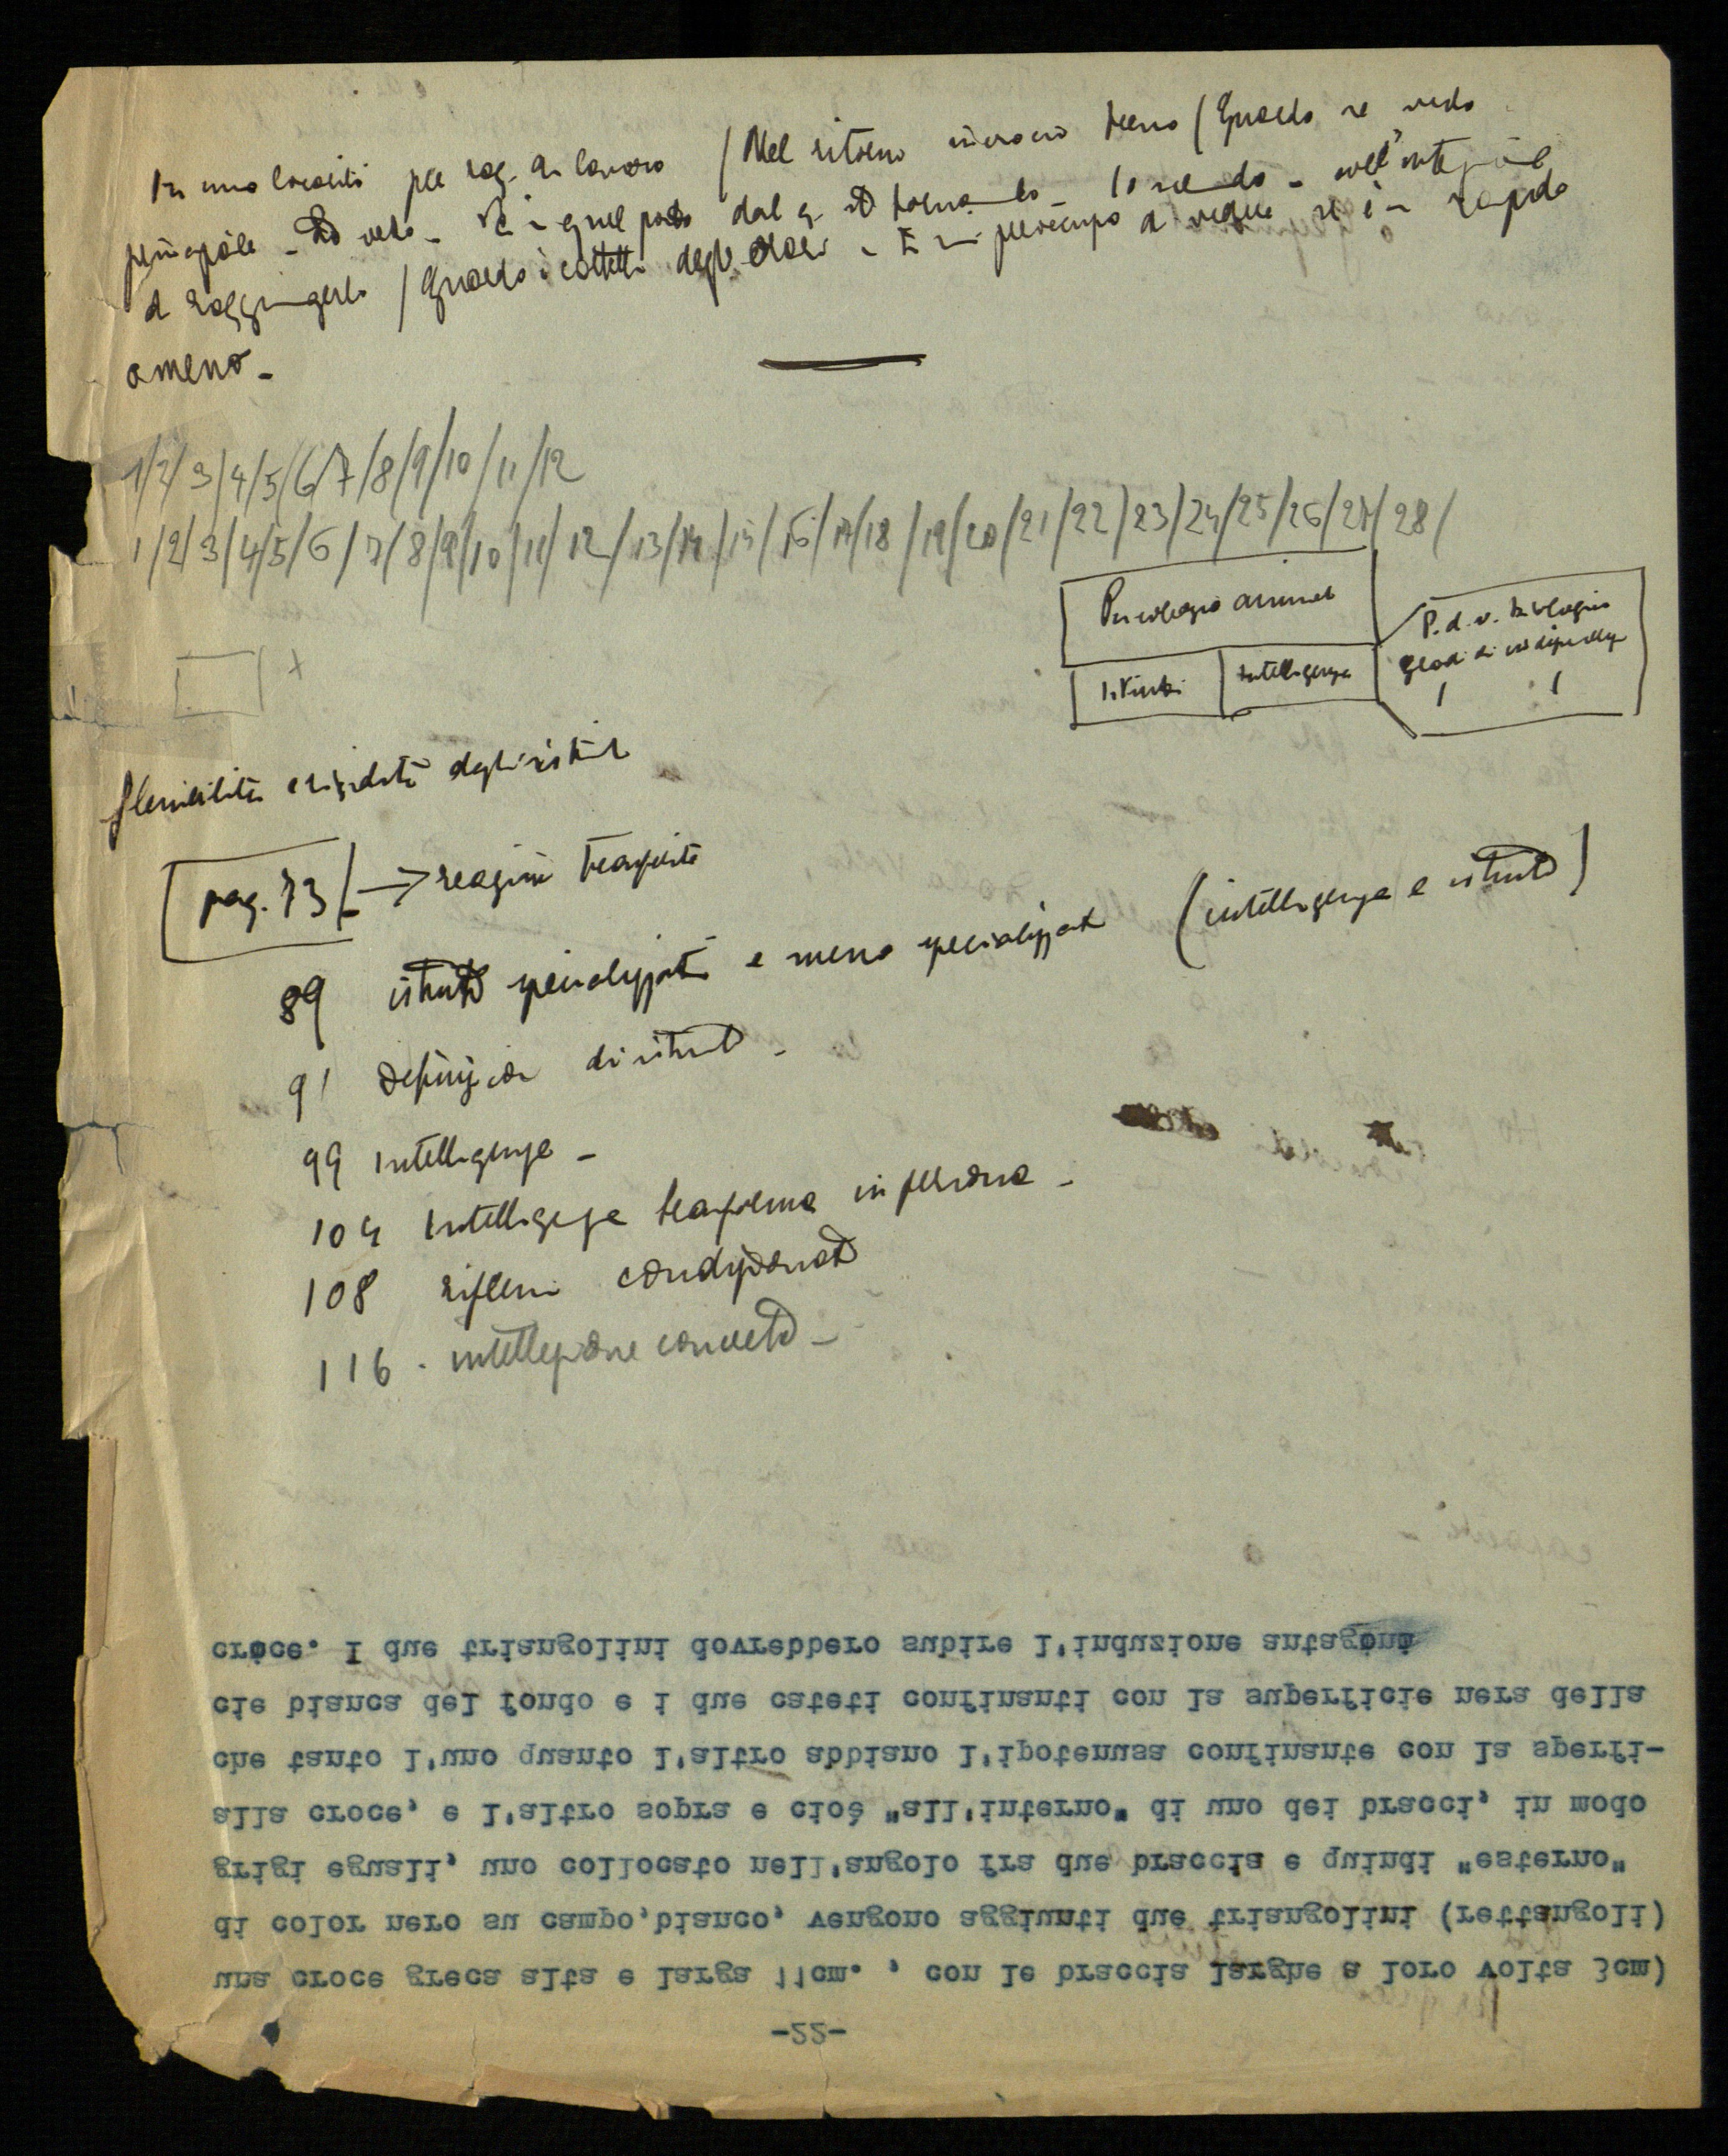 In una località per rag. di lavoro / Nel ritorno incrocio treno / Guardo se vedo
principale - Lo vedo - È in quel posto dal q. sto tornando - Io scendo - coll'
a raggiungerlo / Guardo i cartelli degli orari - E mi preoccupo di vedere se è un rapido
o meno -
1/2/3/4/5/6/7/8/9/10/11/12
1/2/3/4/5/6/7/8/9/10/11/12/13/14/15/16/17/18/19/20/21/22/23/24/25/26/27/28/
Psicologia animale
P.d.v. biologico
Gradi di
Istinto
Intelligenza
+
flessibilità e rigidità degli istinti
pag. 73 → reazioni
89 istinto specializzato e meno specializzato (intelligenza e istinto)
91 definizione di istinto -
99 Intelligenza -
104 Intelligenza trasforma in -
108 riflessi condizionati
116 - intellezione concetto -
-22-
una croce greca alta e larga 11cm. , con le braccia larghe a loro volta 3cm)
di color nero su campo,bianco, vengono aggiunti due triangolini (rettangoli)
grigi eguali, uno collocato nell'angolo fra due braccia e quindi "esterno"
alla croce, e l'altro sopra e cioè "all'interno" di uno dei bracci, in modo
che tanto l'uno quanto l'altro abbiano l'ipotenusa confinante con la sperfi-
cie bianca del fondo e i due cateti confinanti con la superficie nera della
croce. I due triangolini dovrebbero subire l'induzione antagono